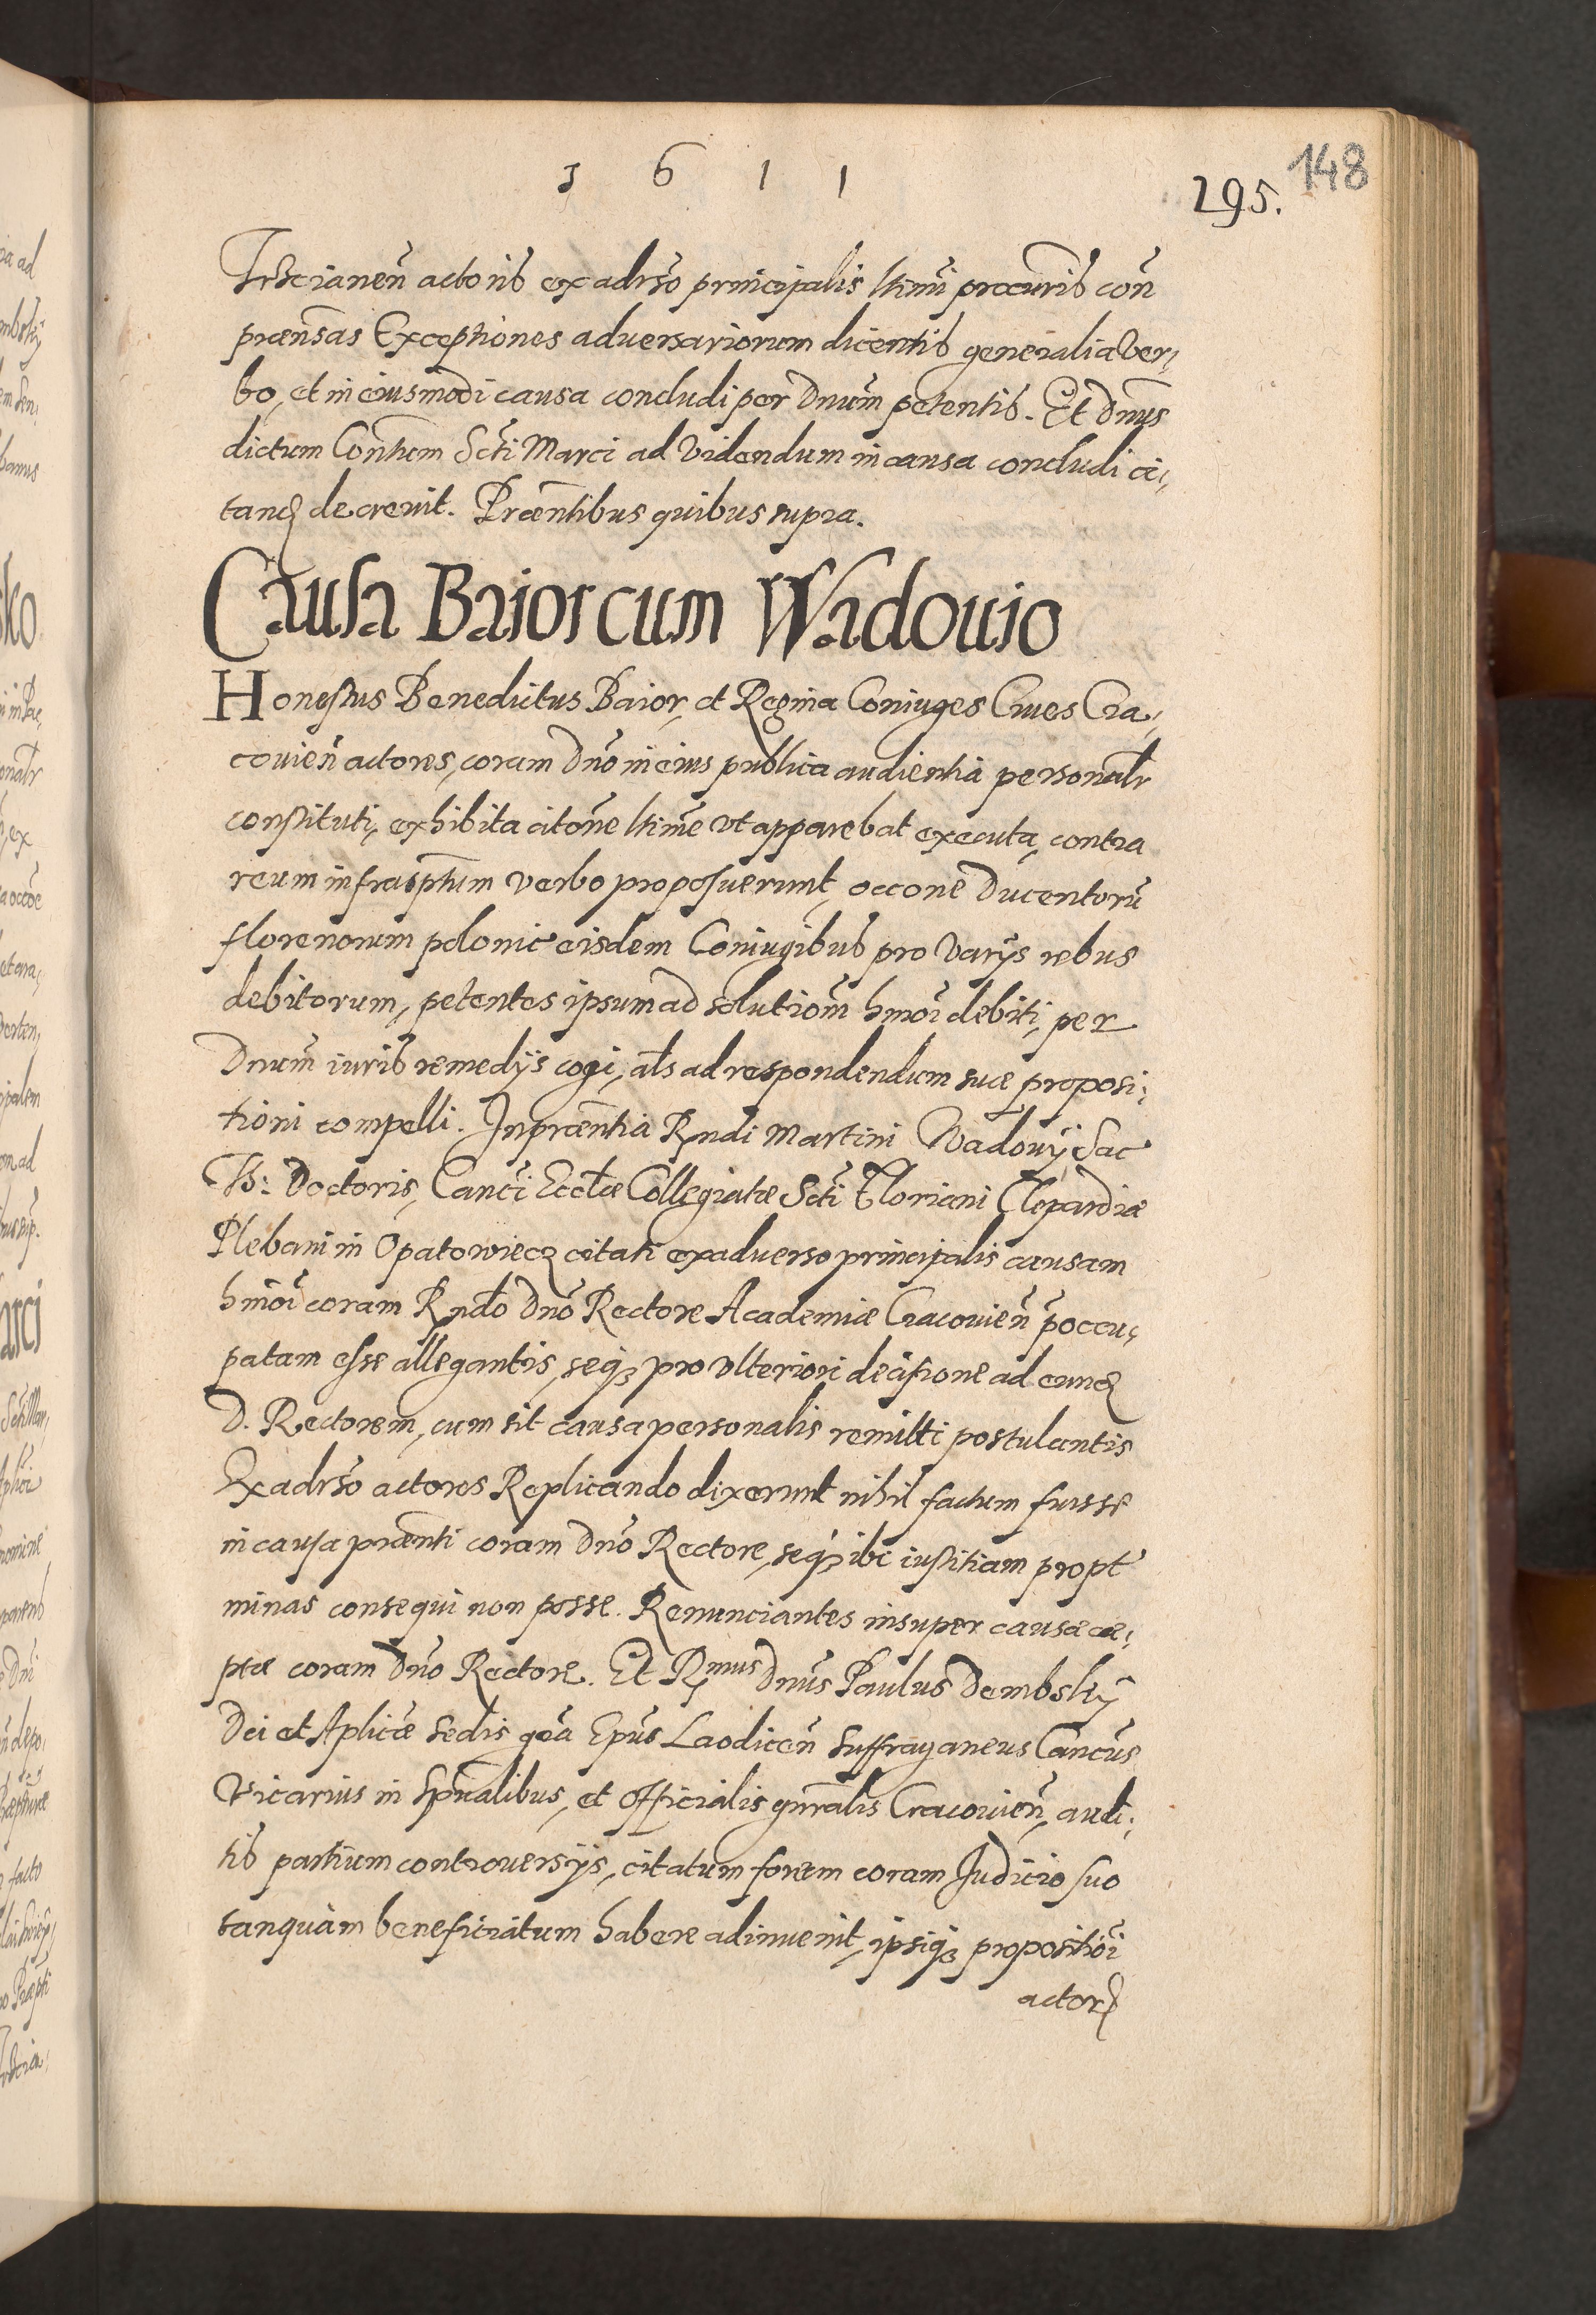 1 6 1 1
148
295.
actoris ex adrso principalis ltimi procuris con
praensas Exceptiones adversariorum dicentis generalia ver,
bo, et in eiusmodi causa concludi per Dnum petentis. Et Dnus
dictum Conttum Scti Marci ad videndum in causa concludi ci,
tand decrevit. Praentibus quibus supra.
Causa Baior cum Wadouio
Honestus Benedictus Baior, et Regina Coniuges Ciues Cra,
couien actores, coram Dno in eius publica audientia personalr
constituti, exhibita citone ltime vt apparebat executa, contra
reum infrasptum verbo proposuerunt, occone Ducentoru
florenorum polonic eisdem Coniugibus pro varijs rebus
debitorum, petentes ipsum ad solutiom hmoi debiti, per
Dnum iuris remedijs cogi, als ad respondendum suae proposi,
tioni compelli. In praentia Rndi Martini Wadovij Sac
Th: Doctoris, Canci Eccliae Collegiatae Scti Floriani Clepardiae
Plebani in Opatowiecz citati ex adverso principalis causam
hmoi coram Rndo Dno Rectore Academiae Cracouien poccu,
patam esse allegantis, seqz pro vlteriori decisione ad eund
D. Rectorem, cum sit causa personalis remitti postulantis
Ex adrso actores Replicando dixerunt nihil factum fuisse
in causa praenti coram Dno Rectore, seqz ibi iustitiam propt
minas consequi non posse. Renunciantes insuper causae cae,
ptae coram Dno Rectore. Et Rmus Dnus Paulus Dembsky
Dei et Aplicae Sedis gra Epus Laodicen Suffraganeus Cancus
Vicarius in Spnalibus, et Officialis gnralis Cracouien, audi,
tis partium controversijs, citatum forem coram Judicio suo
tanquam beneficiatum habere adinvenit, ipsiqz propositioi
actor